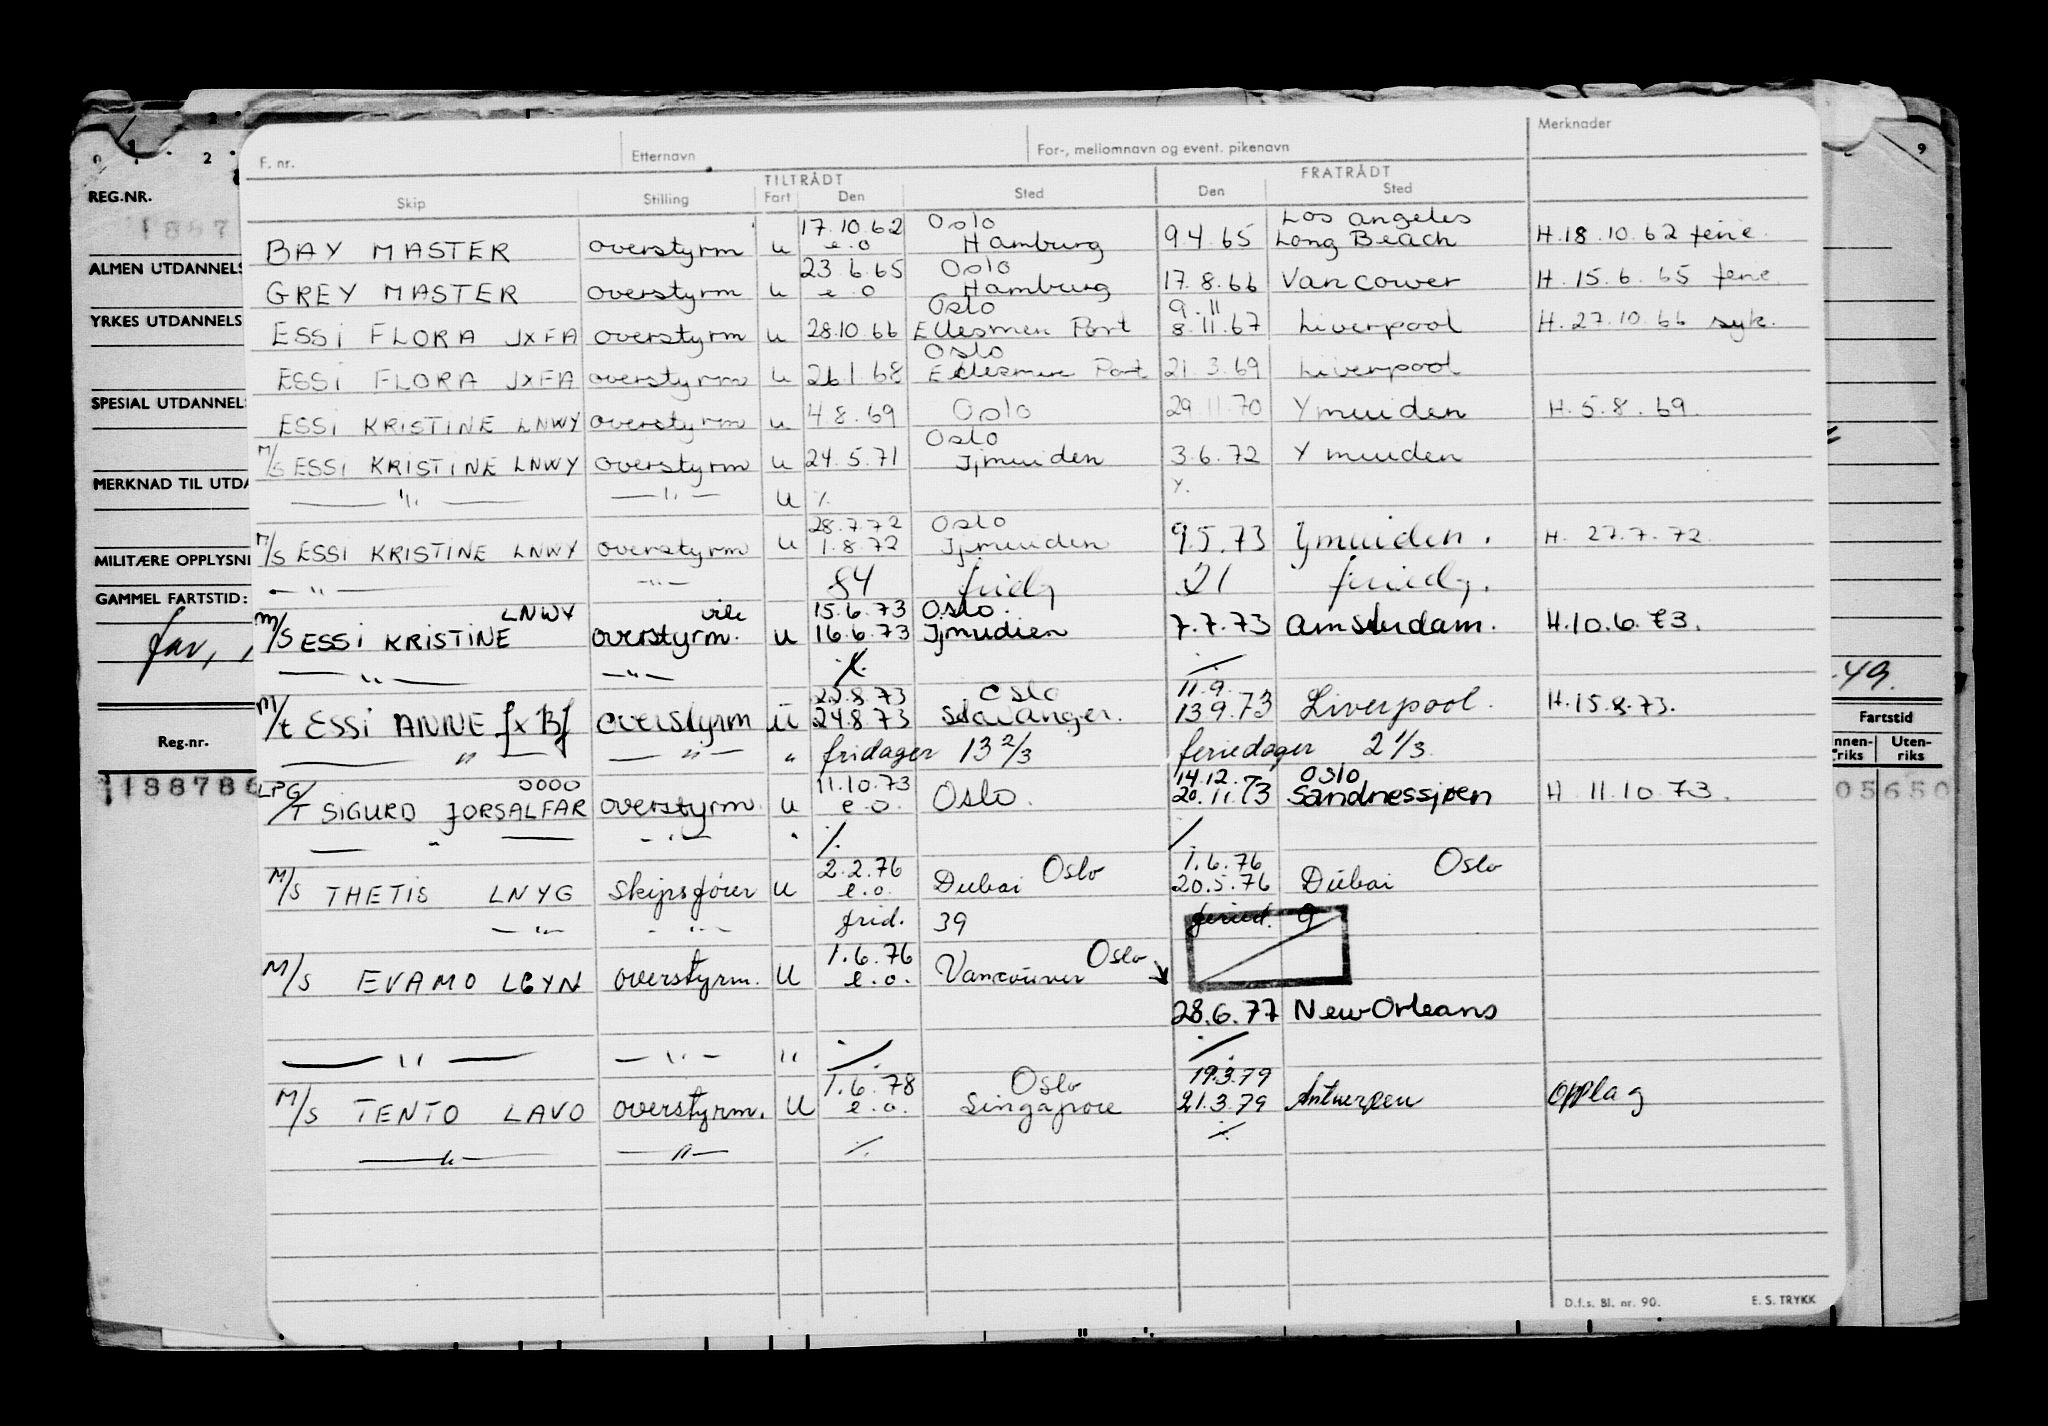 F. nr. Etternavn For-, mellomnavn og event. pikenavn Merknader
TILTRÅDT FRATRÅDT
Skip Stilling Fart Den Sted Den Sted
17.10.62 Oslo Los Angeles
BAY MASTER overstyrm u e.o Hamburg 9.4.65 Long Beach H.18.10.62 ferie.
23.6.65 Oslo
GREY MASTER overstyrm u e.o Hamburg 17.8.66 Vancouver H.15.6.65 ferie.
Oslo 9.11
ESSI FLORA JXFA overstyrm u 28.10.66 Ellesmen Port 8.11.67 Liverpool H.27.10.66 syk.
Oslo
ESSI FLORA JXFA overstyrm u 26.1.68 Ellesmere Port 21.3.69 Liverpool
ESSI KRISTINE LNWY overstyrm u 4.8.69 Oslo 29.11.70 Ymuiden H.5.8.69.
Oslo
M/S ESSI KRISTINE LNWY overstyrm u 24.5.71 Ijmuiden 3.6.72 Ymuiden
— " — — " — u ./. ./.
28.7.72 Oslo
M/S ESSI KRISTINE LNWY overstyrm u 1.8.72 Ijmuiden 9.5.73 Ijmuiden. H. 27.7.72.
— " — — " — 84 fridg 21 feriedg.
LNWY vik 15.6.73 Oslo.
M/S ESSI KRISTINE overstyrm. u 16.6.73 Ijmudien 7.7.73 Amsterdam. H.10.6.73.
— " — — " — ./. ./.
22.8.73 Oslo 11.9.
M/T ESSI ANNE JXBJ overstyrm u 24.8.73 Stavanger. 13.9.73 Liverpool. H.15.8.73.
— " — — " — " fridager 13 2/3 feriedager 2 1/3.
LPG/T OOOO 11.10.73 14.12. Oslo
SIGURD JORSALFAR overstyrm. u e.o. Oslo. 20.11.73 Sandnessjøen H 11.10.73.
— " — — " — " ./. ./.
2.2.76 Oslo 1.6.76 Oslo
M/S THETIS LNYG Skipsfører u e.o. Dubai 20.5.76 Dubai
— " — — " — frid. 39 feried. 9
1.6.76 Oslo
M/S EVAMO LGYN overstyrm. U e.o. Vancouver
28.6.77 New Orleans
— " — — " — " ./. ./.
1.6.78 Oslo 19.3.79
M/S TENTO LAVO overstyrm. U e.o. Singapore 21.3.79 Antwerpen Opplag
— " — — " — ./. ./.
D.f.s. Bl. nr. 90. E. S. TRYKK
REG.NR.
1887
ALMEN UTDANNELS
YRKES UTDANNELS
SPESIAL UTDANNEL
MERKNAD TIL UTDA
MILITÆRE OPPLYSNI
GAMMEL FARTSTID:
far,
49.
Reg.nr.
188786
Fartstid
nnen-riks Uten-riks
05650
0 1 2
9